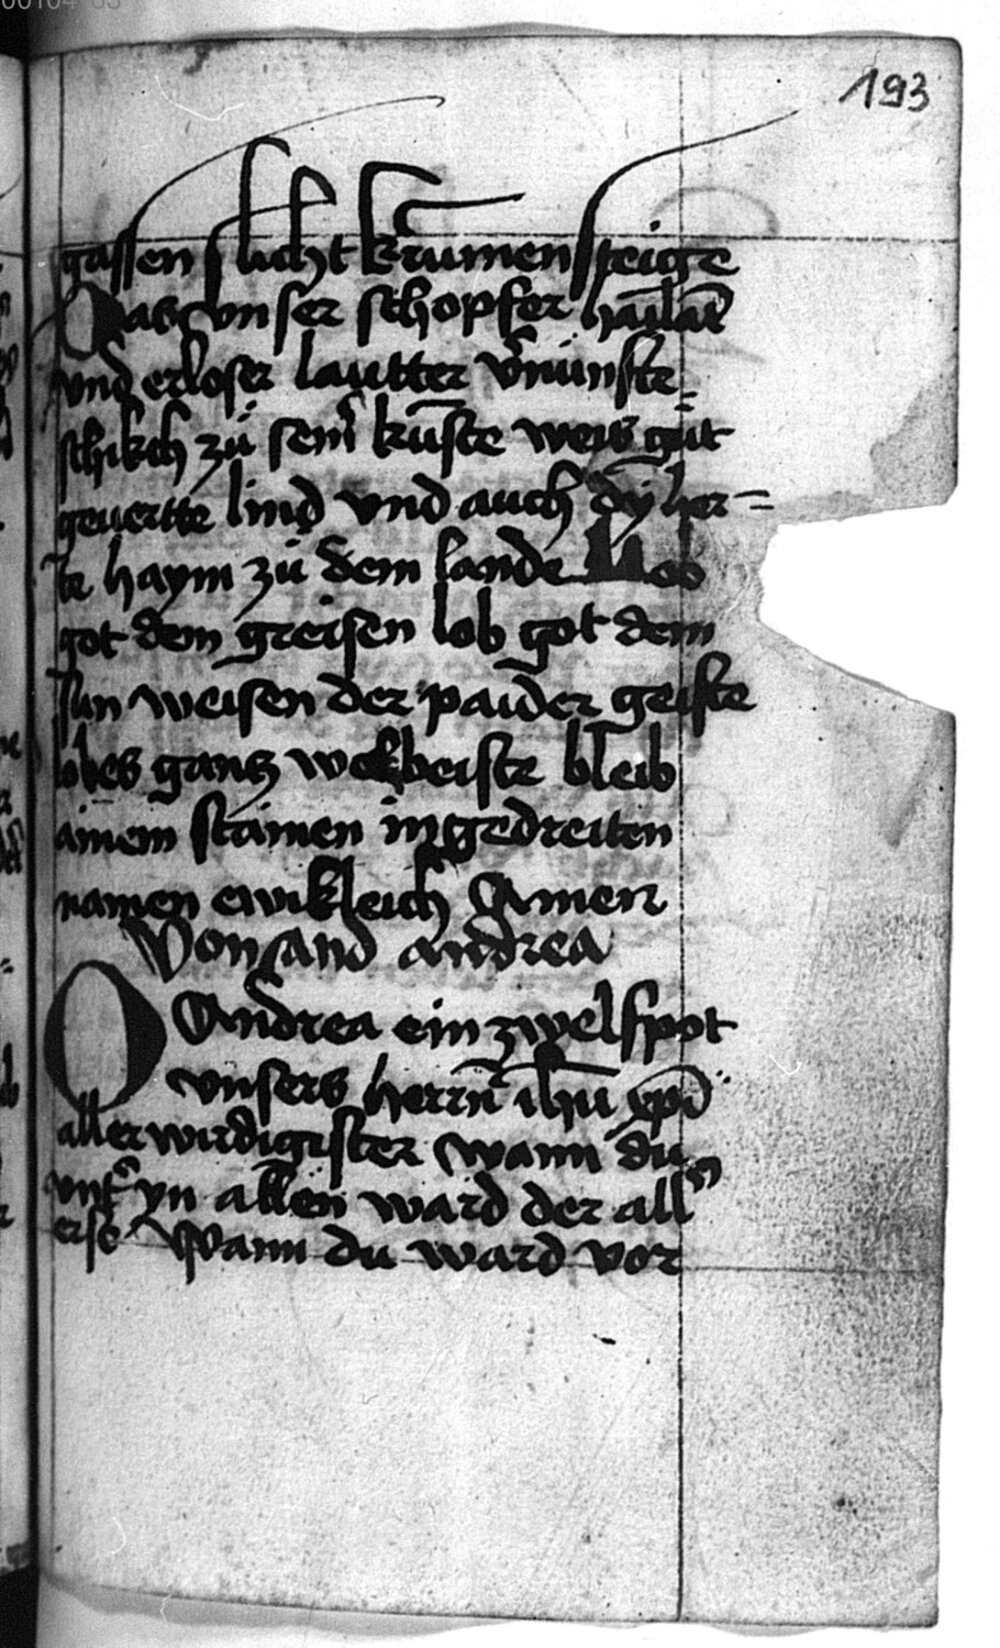 193
gassen slicht krumen steige
Das vnser schopfer hailār
vnd erloser lautter v̄nünfte
schikch zü sein kūste weis güt
geuertte lind vnd auch dy her=
te haym zü dem lande Lob
got dem greisen lob got dem
sun weisen der paider geiste
lobes gancz bleib
ainem stamen in gedreiten
namen ewikleich Amen
Von sand andrea
O Andrea ein zwelfpot
vnsers herrn̄ ihū xpī
aller wirdigister wann du
vnt̄ yn allen ward der all
erst Wann du ward vor